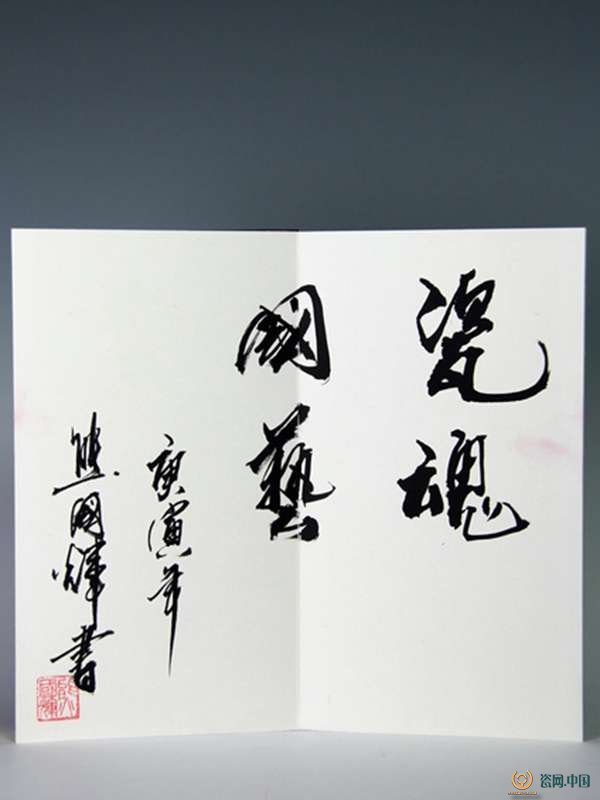 瓷魂
國藝
庚寅年
熊國輝書
瓷网.中国